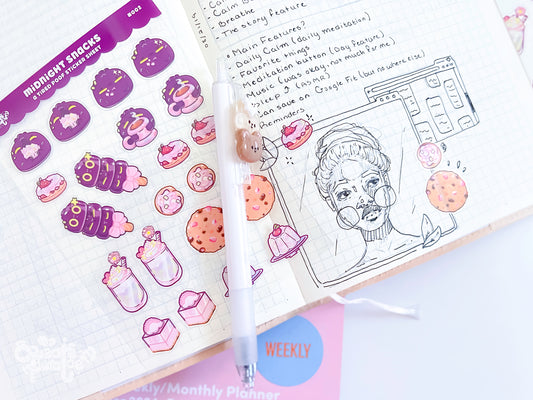 MIDNIGHT SNACKS
& TIRED POOF STICKER SHEET
R002
5/15/20
Breathe
The story feature
Main Features?
Daily Calm (daily meditation)
Favorite things
Meditation button (Day feature)
Music (was okay, not much for me)
Sleep
(ASMR)
Can save on Google Fit (but no where else)
Reminders
WEEKLY
Weekly/Monthly Planner